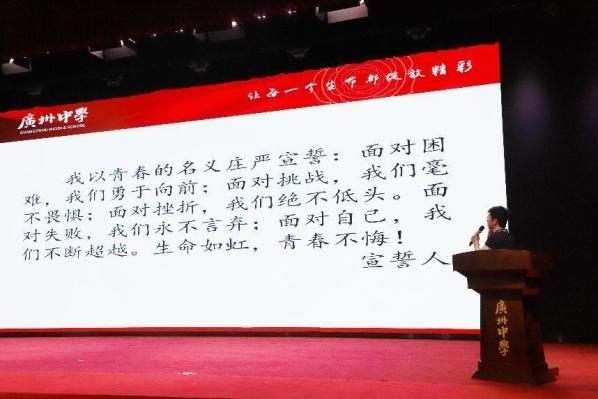 廣州中學
GUANGZHOU MIDDLE SCHOOL
让每一个生命都绽放精彩
我以青春的名义庄严宣誓：面对困
难，我们勇于向前；面对挑战，我们毫
不畏惧；面对挫折，我们绝不低头。面
对失败，我们永不言弃；面对自己，我
们不断超越。生命如虹，青春不悔！
宣誓人
廣州中學